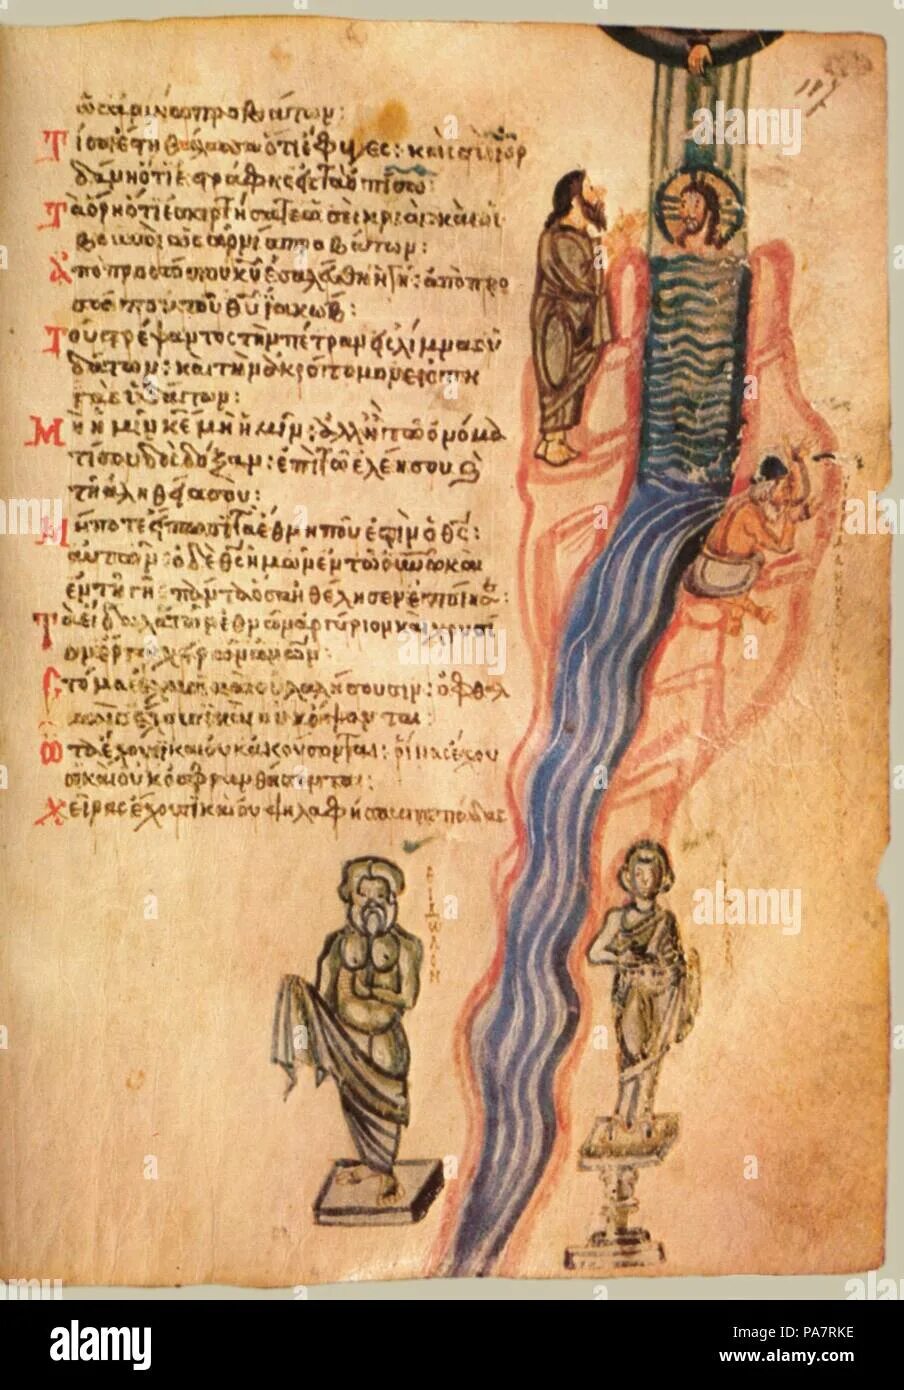 ὡς ἀρνία προβάτων:
Τί σοι ἐστὶ θάλασσα ὅτι ἔφυγες: καὶ σὺ ἰορ
δάνη ὅτι ἐστράφης εἰς τὰ ὀπίσω
Τὰ ὄρη ὅτι ἐσκιρτήσατε ὡσεὶ κριοὶ: καὶ οἱ
βουνοὶ ὡς ἀρνία προβάτων:
Ἀπὸ προσώπου κυ ἐσαλεύθη ἡ γῆ: ἀπὸ προ
σώπου τοῦ θυ ἰακώβ:
Τοῦ στρέψαντος τὴν πέτραν εἰς λίμνας ὑ
δάτων: καὶ τὴν ἀκρότομον εἰς πη
γὰς ὑδάτων:
Μὴ ἡμῖν κε μὴ ἡμῖν: ἀλλ' ἢ τῷ ὀνόμα
τί σου δὸς δόξαν: ἐπὶ τῷ ἐλέει σου ϗ
τῇ ἀληθείᾳ σου:
Μήποτε εἴπωσι τὰ ἔθνη ποῦ ἐστιν ὁ θς:
αὐτῶν: ὁ δὲ θς ἡμῶν ἐν τῷ οὐνῷ καὶ
ἐν τῇ γῇ: πάντα ὅσα ἠθέλησεν ἐποίησεν:
Τὰ εἴδωλα τῶν ἐθνῶν ἀργύριον καὶ χρυσί
ον ἔργα χειρῶν ἀνων:
Στόμα ἔχουσι καὶ οὐ λαλήσουσιν: ὀφθαλ
μοὺς ἔχουσι καὶ οὐκ ὄψονται:
Ὦτα ἔχουσι καὶ οὐκ ἀκούσονται: ῥῖνας ἔχου
σι καὶ οὐκ ὀσφρανθήσονται:
Χεῖρας ἔχουσι καὶ οὐ ψηλαφήσουσιν: πόδας
ΕΙΔΩΛΟΝ
alamy
alamy
Image ID: PA7RKE
www.alamy.com